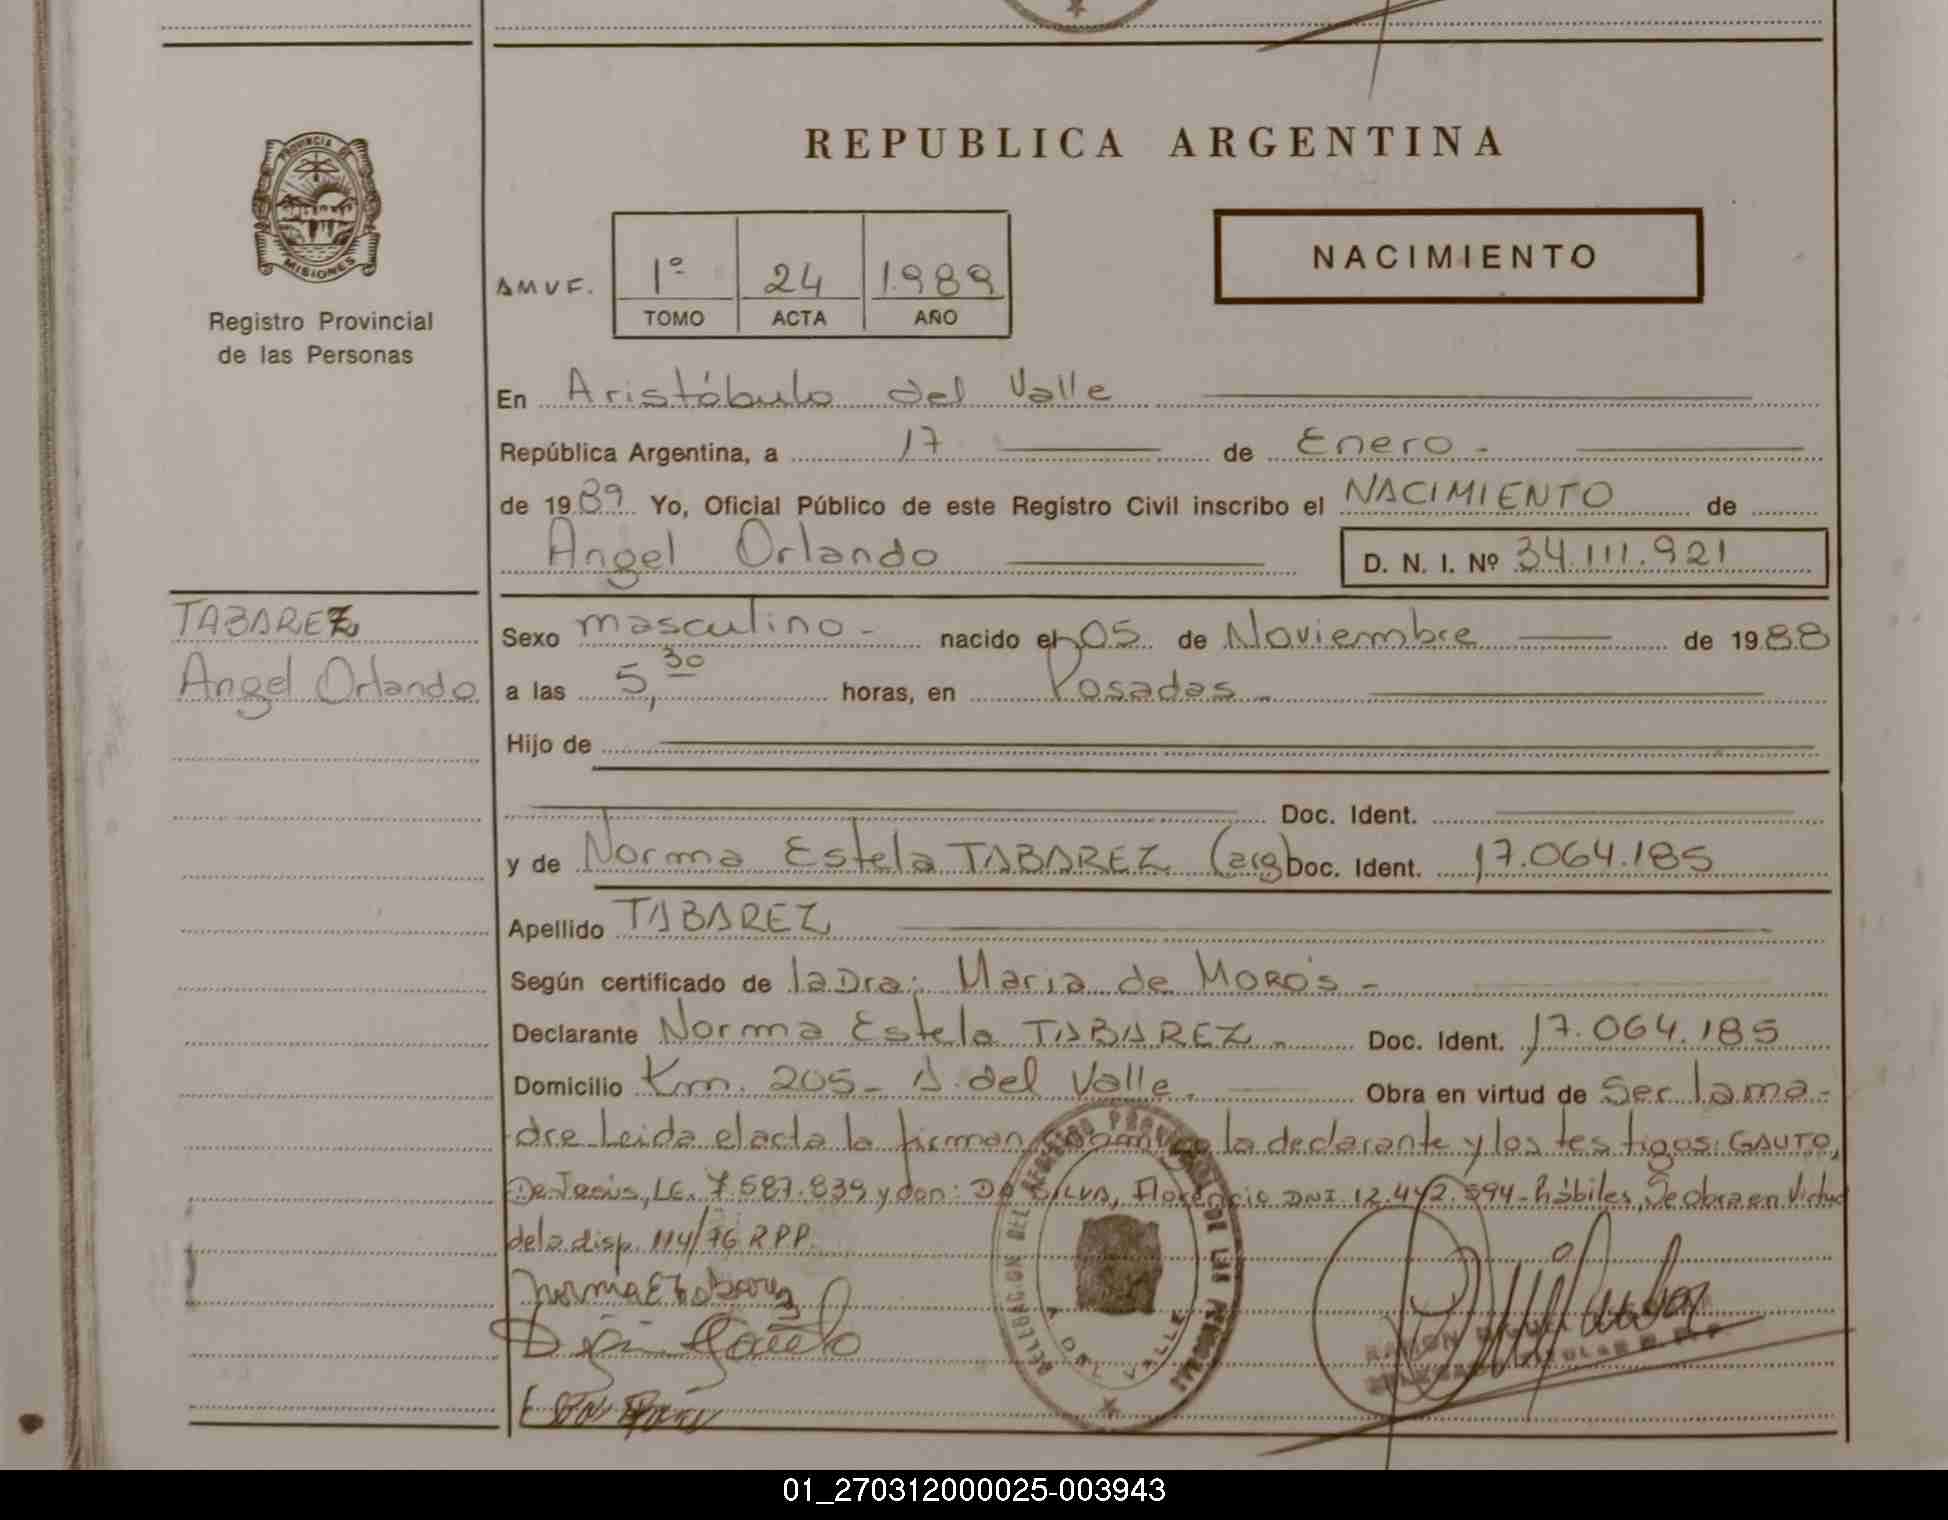 REPUBLICA ARGENTINA
PROVINCIA DE
MISIONES
Registro Provincial
de las Personas
AMVE.
1º 24 1.989
TOMO ACTA AÑO
NACIMIENTO
En Aristóbulo del Valle
República Argentina, a 17 de Enero -
de 1989 Yo, Oficial Público de este Registro Civil inscribo el NACIMIENTO de
Angel Orlando D. N. I. Nº 34.111.921
TABAREZ
Angel Orlando
Sexo masculino - nacido el 05 de Noviembre de 1988
a las 5,30 horas, en Posadas -
Hijo de
Doc. Ident.
y de Norma Estela TABAREZ (arg) Doc. Ident. 17.064.185
Apellido TABAREZ
Según certificado de la Dra: Maria de MORO'S -
Declarante Norma Estela TABAREZ - Doc. Ident. 17.064.185
Domicilio Km. 205 - A. del Valle - Obra en virtud de Ser la ma-
dre Leida el acta la firman conmigo la declarante y los testigos: GAUTO,
De Jesús, LE. 7.587.839 y don: DA SILVA, Florencio DNI. 12.442.594 - hábiles, Se obra en Virtud
de la disp. 114/76 R.P.P.
DELEGACION DEL REGISTRO PROVINCIAL DE LAS PERSONAS
VALLE
RAMON
DELEGADO TITULAR R.P.P.
01_270312000025-003943